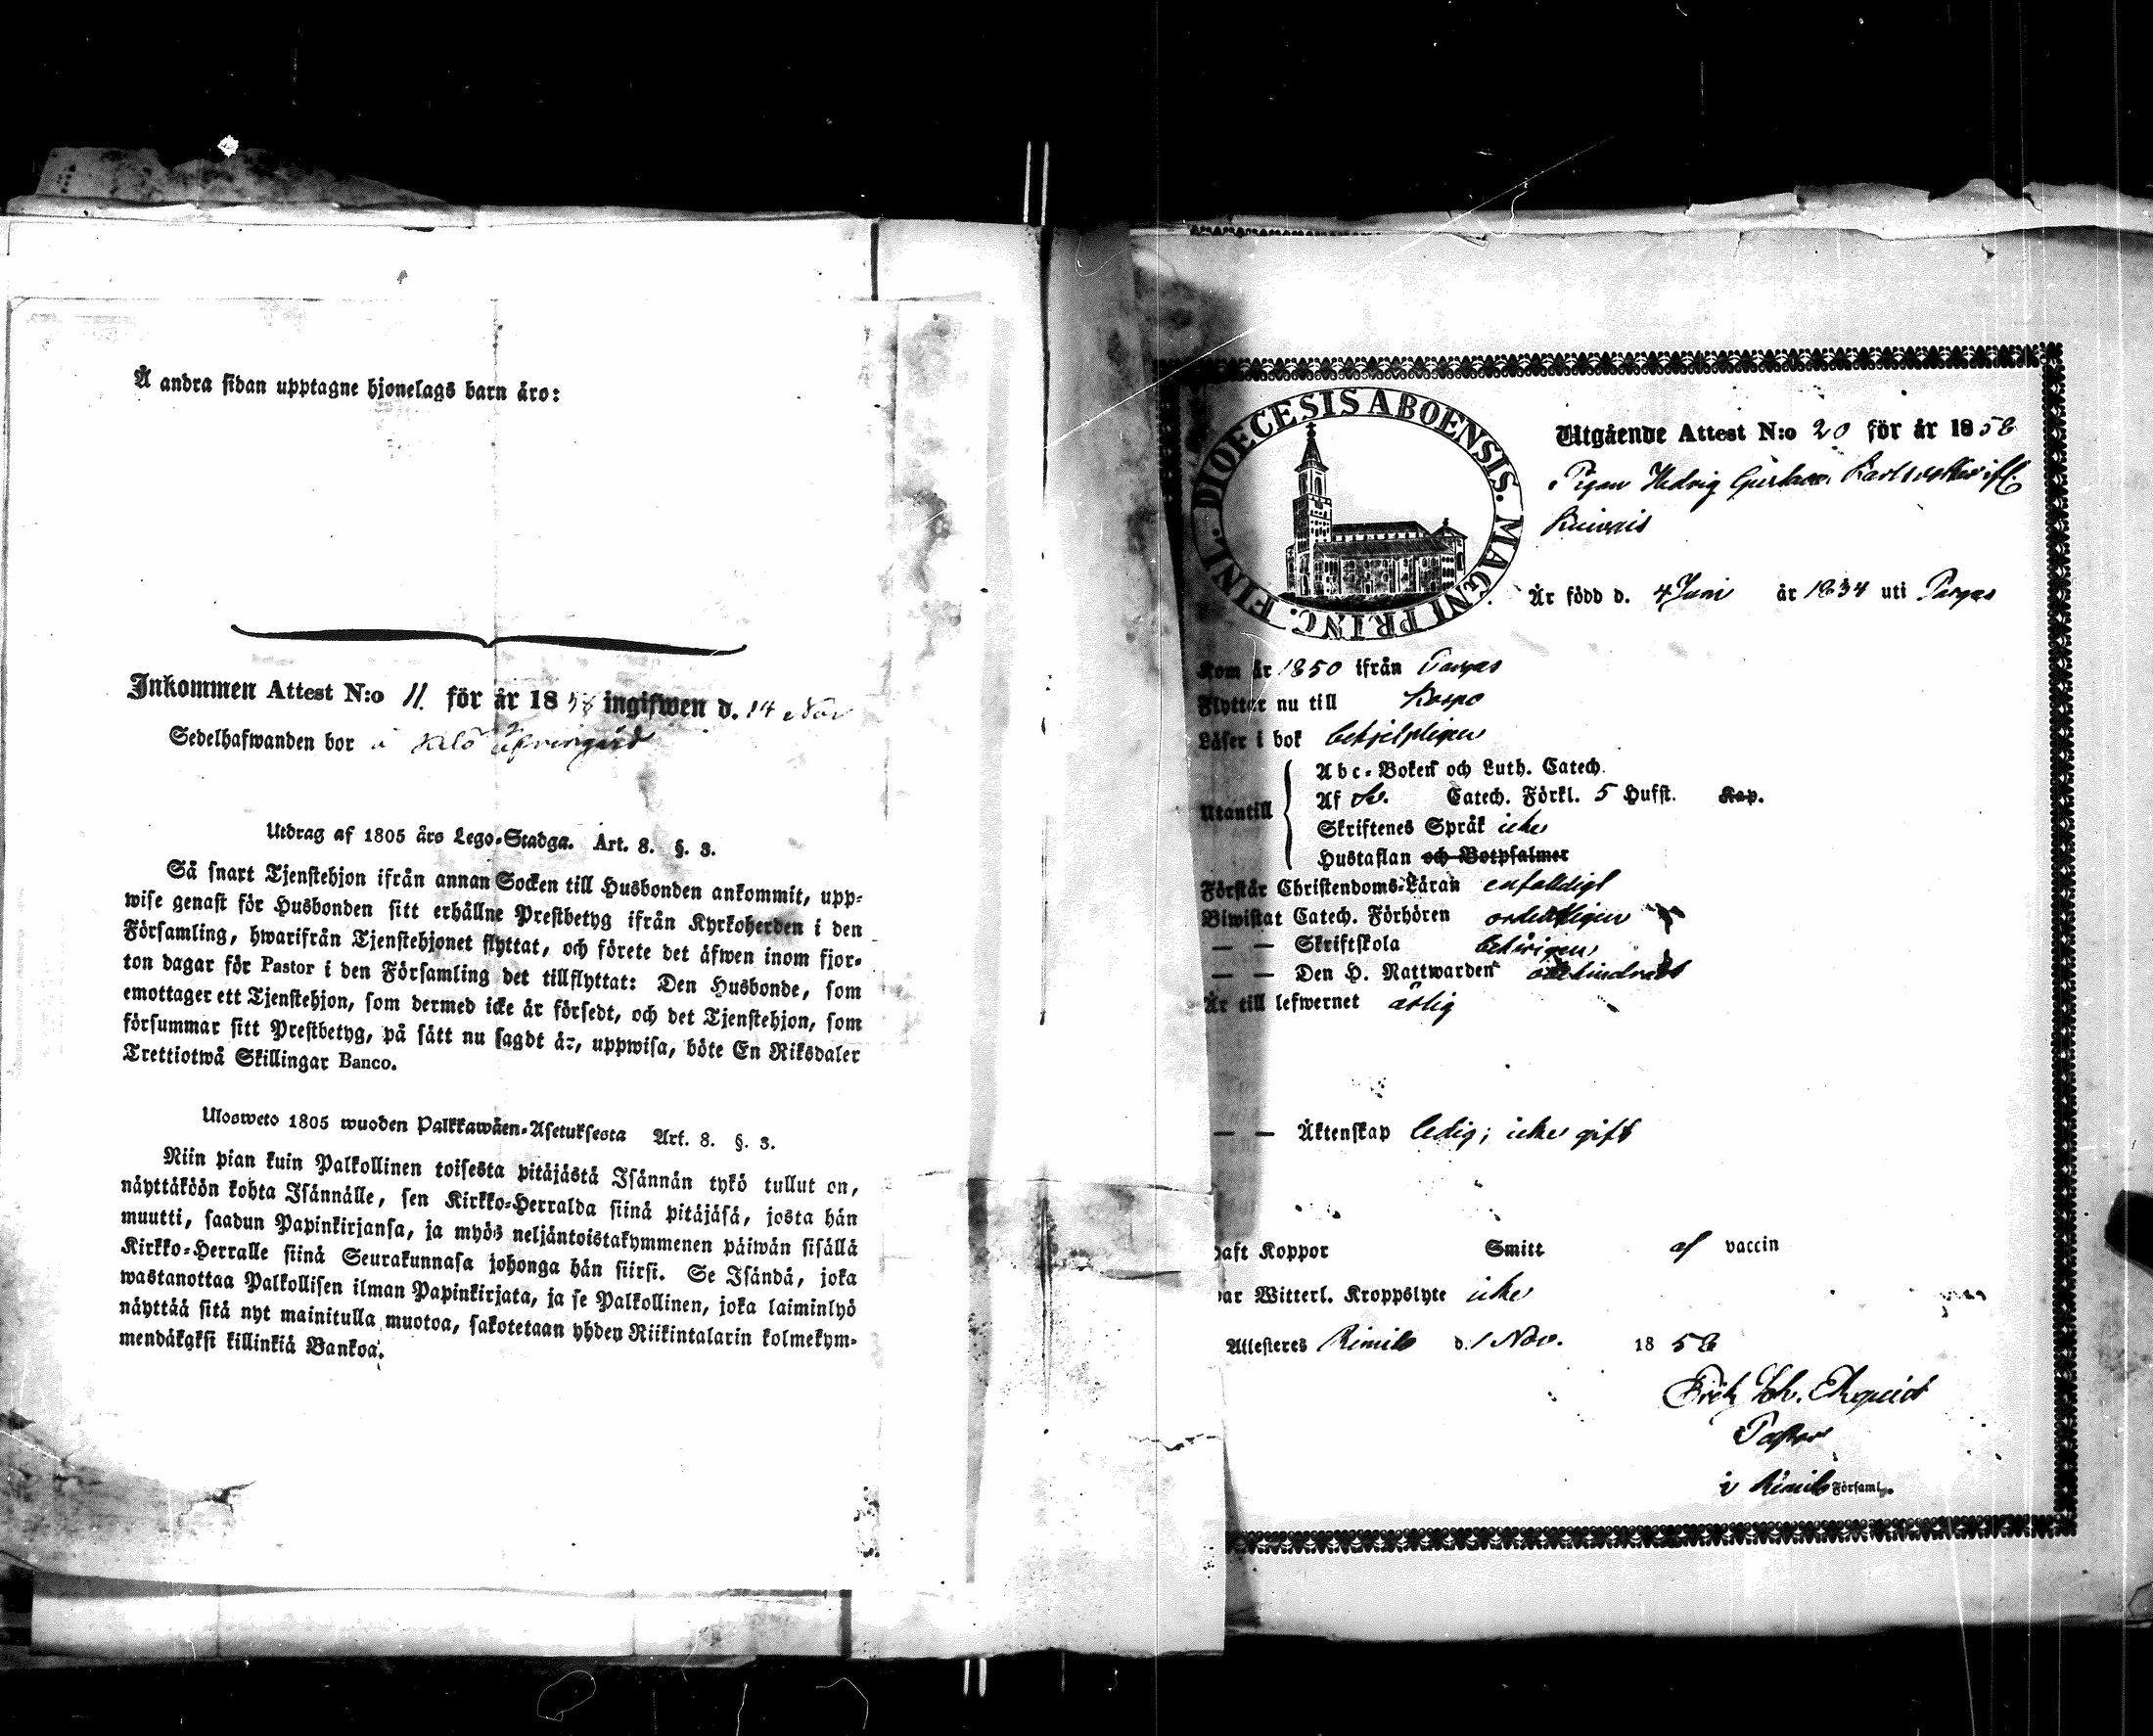 Å andra sidan upptagne hjonelags barn äro:
Inkommen Attest N:o 11. för år 1858 ingifwen d. 14 Nov
Sedelhafwanden bor å
Utdrag af 1805 års Lego-Stadga. Art. 8. §. 3.
Så snart Tjenstehjon ifrån annan Socken till Husbonden ankommit, upp-
wise genast för Husbonden sitt erhållne Prestbetyg ifrån Kyrkoherden i den
Församling, hwarifrån Tjenstehjonet flyttat, och förete det äfwen inom fjor-
ton dagar för Pastor i den Församling det tillflyttat: Den Husbonde, som
emottager ett Tjenstehjon, som dermed icke är försedt, och det Tjenstehjon, som
försummar sitt Prestbetyg, på sätt nu sagdt är, uppwisa, böte En Riksdaler
Trettiotwå Skillingar Banco.
Ulosweto 1805 wuoden Palkkawäen-Asetuksesta Art. 8. §. 3.
Niin pian kuin Palkollinen toisesta pitäjästä Isännän tykö tullut on,
näyttäköön kohta Isännälle, sen Kirkko-Herralda siinä pitäjäsä, josta hän
muutti, saadun Papinkirjansa, ja myös neljäntoistakymmenen päiwän sisällä
Kirkko-Herralle siinä Seurakunnasa johonga hän siirsi. Se Isändä, joka
wastanottaa Palkollisen ilman Papinkirjata, ja se Palkollinen, joka laiminlyö
näyttää sitä nyt mainitulla muotoa, sakotetaan yhden Riikintalarin kolmekym-
mendäkaksi killinkiä Bankoa.
DIOECESIS ABOENSIS. MAGNI PRINC. FINL.
Utgående Attest N:o 20 för år 1858
Pigan Hedvig Gustava Karlsdotter ifr.
Är född d. 4 Juni år 1834 uti Pargas
Kom år 1850 ifrån Pargas
Flyttar nu till Korpo
Läser i bok behjelpligen
Utantill
Abc-Boken och Luth. Catech.
Af Sv. Catech. Förkl. 5 Hufst. Kap.
Skriftenes Språk icke
Hustaflan och Botpsalmer
Förstår Christendoms-Läran enfaldigt
Biwistat Catech. Förhören ordentligen
— — Skriftskola behörigen
— — Den H. Nattwarden obehindrad
Är till lefwernet ärlig
— — Äktenskap ledig; icke gift
haft Koppor Smitt af vaccin
har Witterl. Kroppslyte icke
Attesteres Kimito d. 1 Nov. 1858
Joh.
Pastor
i Kimito Församl.